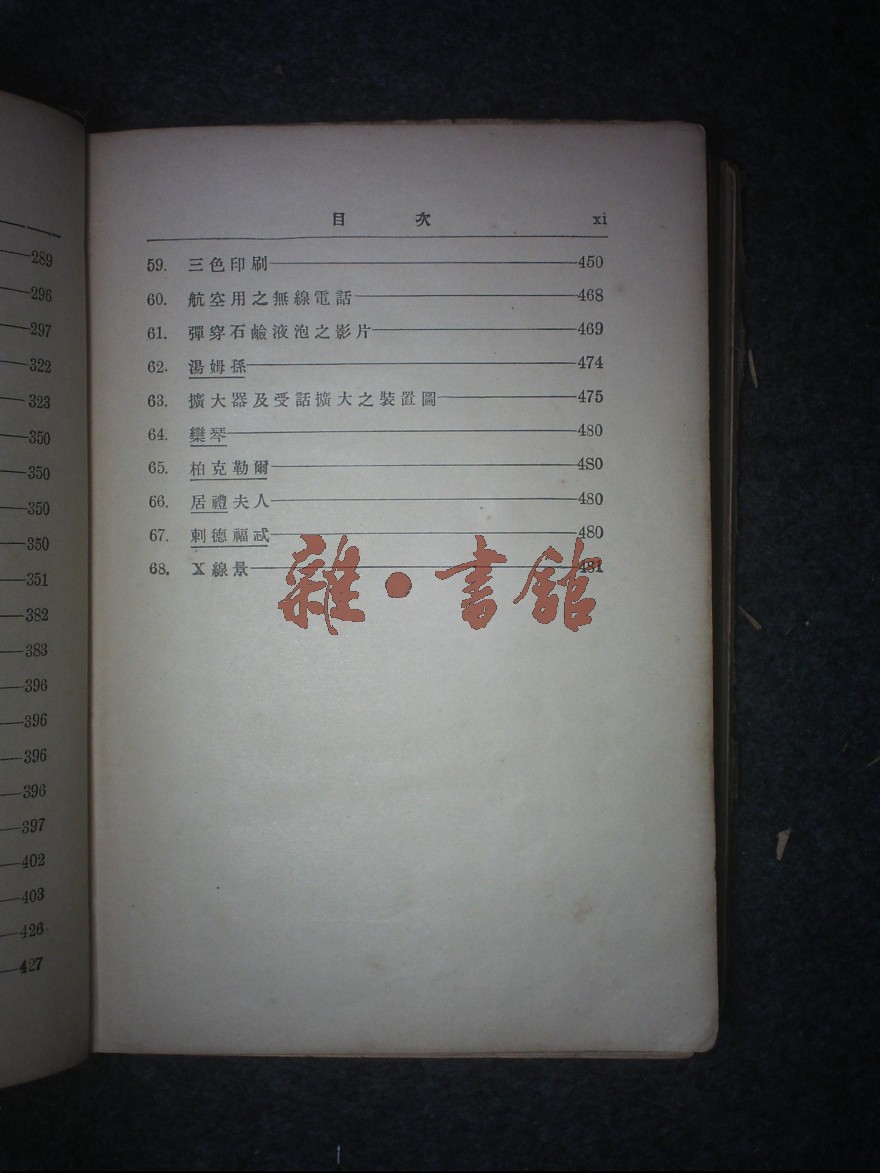 289
296
297
322
323
350
350
350
350
351
382
383
396
396
396
396
397
402
403
426
427
目 次 xi
59. 三色印刷 450
60. 航空用之無線電話 468
61. 彈穿石鹼液泡之影片 469
62. 湯姆孫 474
63. 擴大器及受話擴大之裝置圖 475
64. 欒琴 480
65. 柏克勒爾 480
66. 居禮夫人 480
67. 剌德福忒 480
68. X線景 481
雜·書館